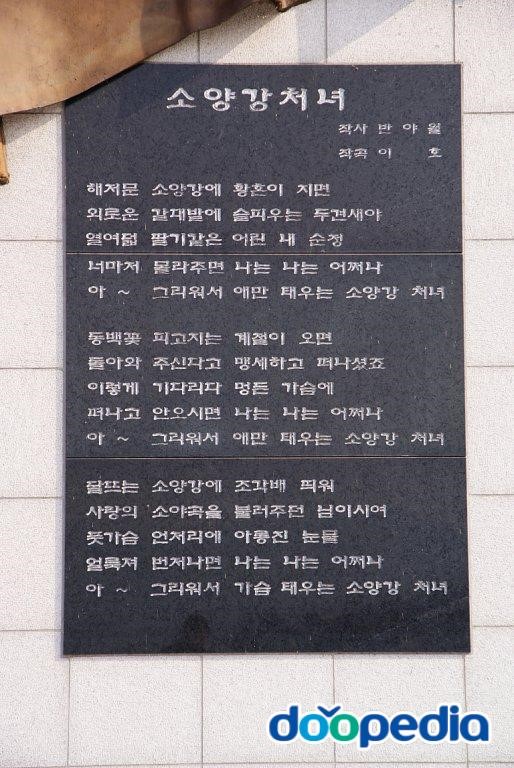 소양강처녀
작사 반 야 월
작곡 이 호
해저문 소양강에 황혼이 지면
외로운 갈대밭에 슬피우는 두견새야
열여덟 딸기같은 어린 내 순정
너마저 몰라주면 나는 나는 어쩌나
아 ~ 그리워서 애만 태우는 소양강 처녀
동백꽃 피고지는 계절이 오면
돌아와 주신다고 맹세하고 떠나셨죠
이렇게 기다리다 멍든 가슴에
떠나고 안오시면 나는 나는 어쩌나
아 ~ 그리워서 애만 태우는 소양강 처녀
달뜨는 소양강에 조각배 띄워
사랑의 소야곡을 불러주던 님이시여
풋가슴 언저리에 아롱진 눈물
얼룩져 번저나면 나는 나는 어쩌나
아 ~ 그리워서 가슴 태우는 소양강 처녀
doopedia